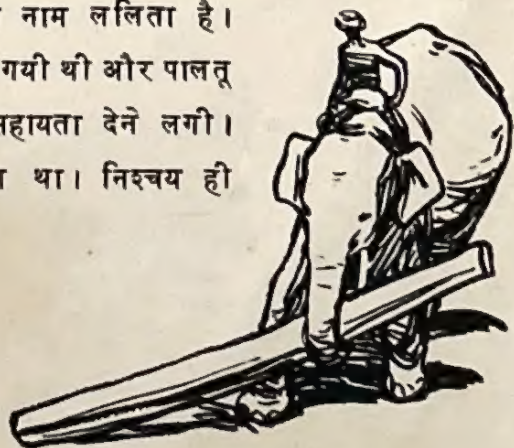 नाम ललिता है।
गयी थी और पालतू
सहायता देने लगी।
था। निश्चय ही